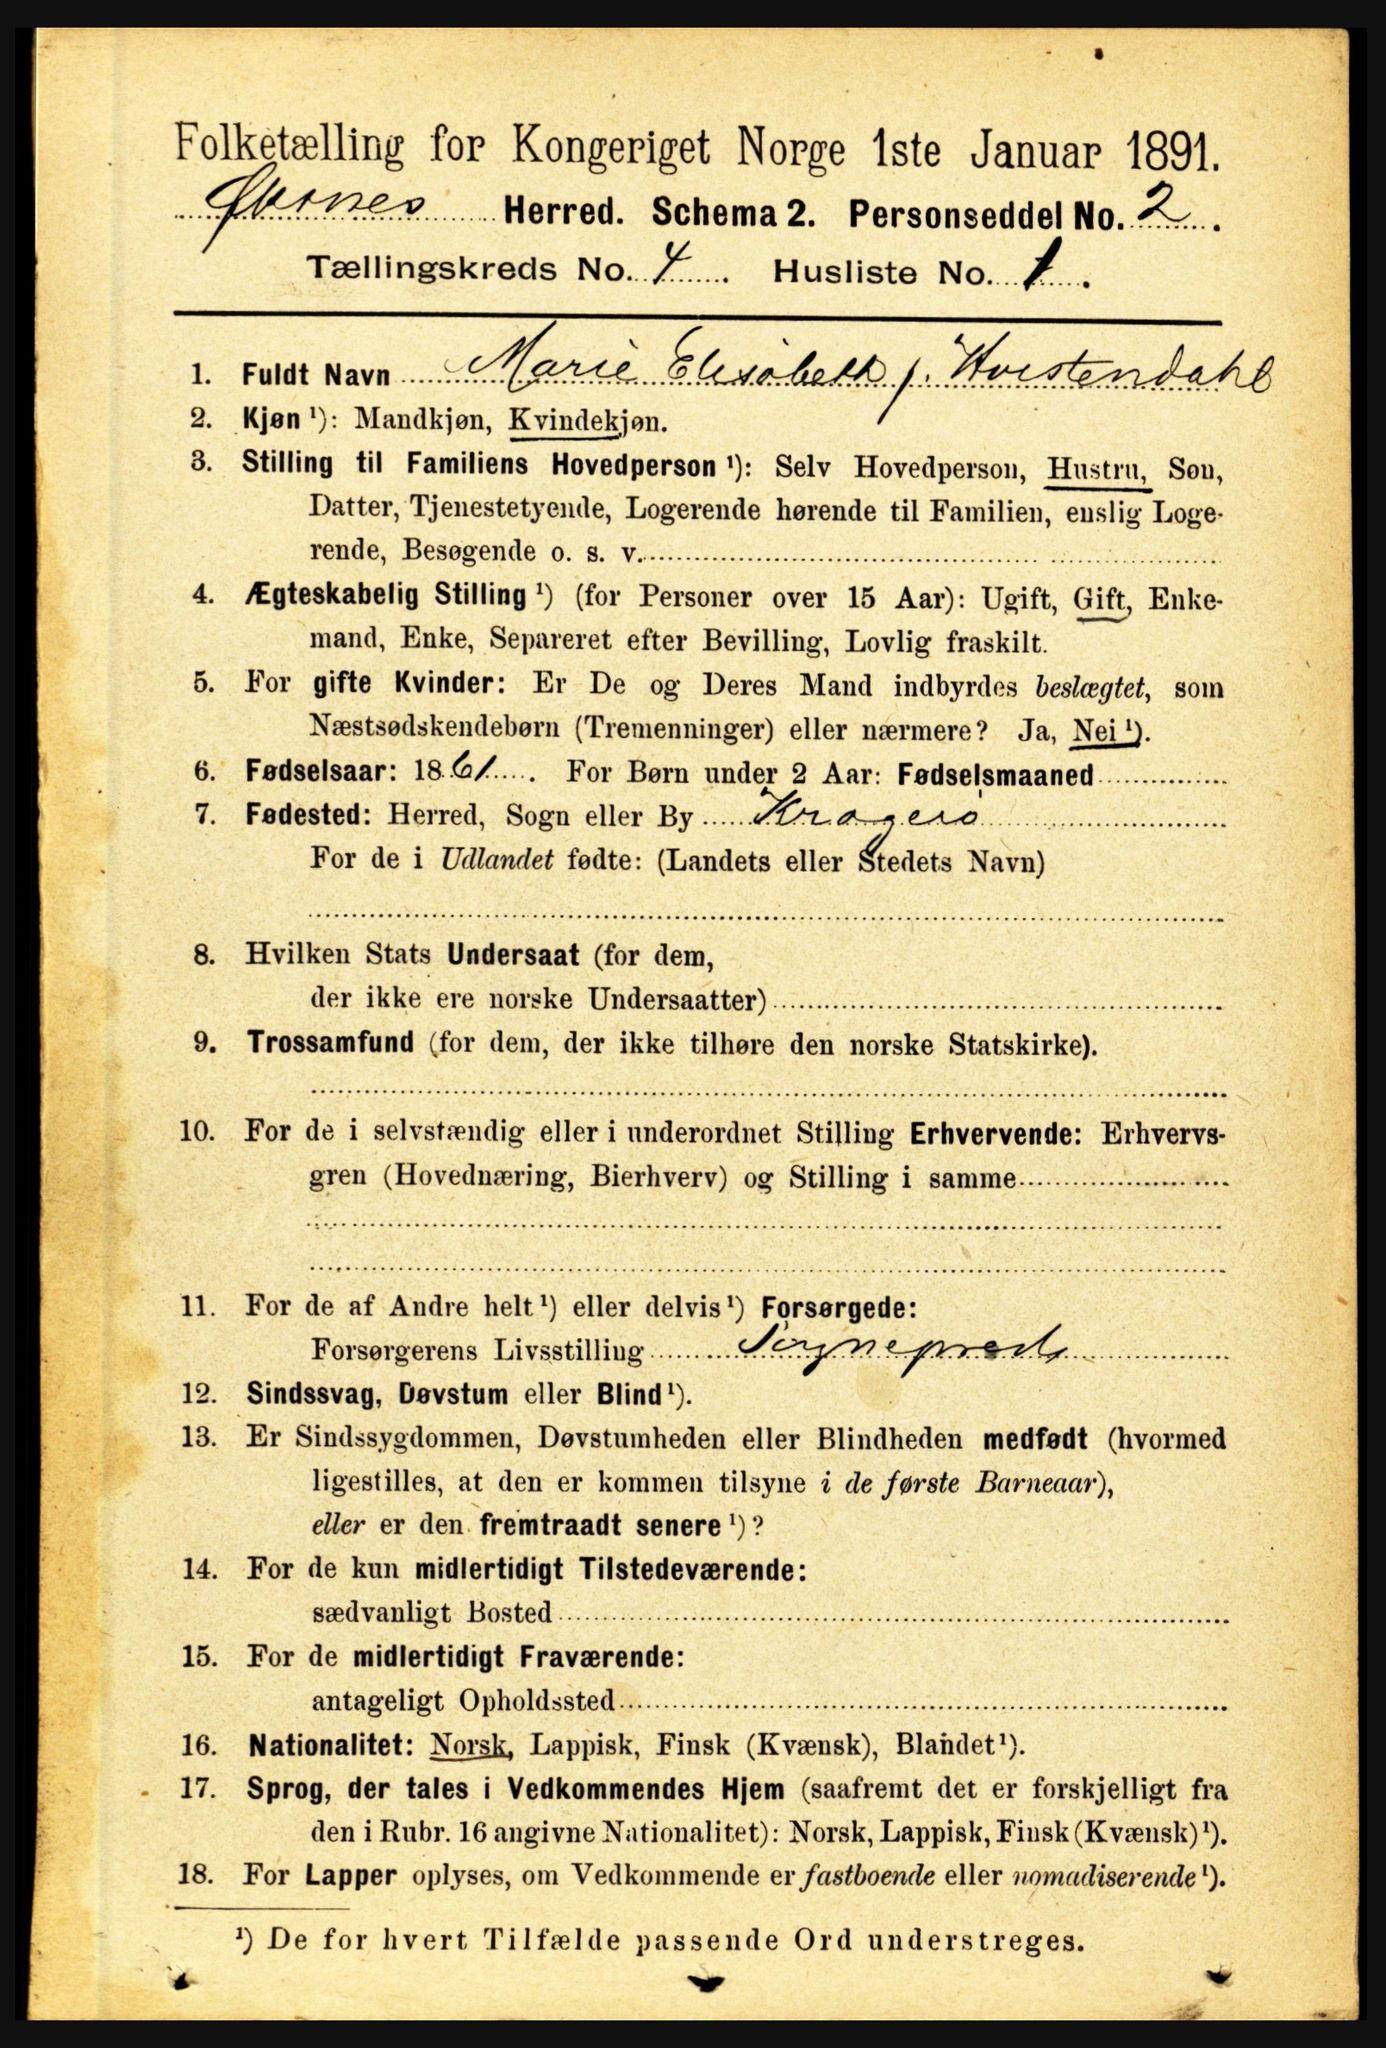 Folketælling for Kongeriget Norge 1ste Januar 1891.
Øksnes Herred. Schema 2. Personseddel No. 2.
Tællingskreds No. 4. Husliste No. 1.
1. Fuldt Navn Marie Elisabeth f. Hvistendahl
2. Kjøn ¹): Mandkjøn, Kvindekjøn.
3. Stilling til Familiens Hovedperson ¹): Selv Hovedperson, Hustru, Søn,
Datter, Tjenestetyende, Logerende hørende til Familien, enslig Loge-
rende, Besøgende o. s. v.
4. Ægteskabelig Stilling ¹) (for Personer over 15 Aar): Ugift, Gift, Enke-
mand, Enke, Separeret efter Bevilling, Lovlig fraskilt.
5. For gifte Kvinder: Er De og Deres Mand indbyrdes beslægtet, som
Næstsødskendebørn (Tremenninger) eller nærmere? Ja, Nei ¹).
6. Fødselsaar: 1861. For Børn under 2 Aar: Fødselsmaaned
7. Fødested: Herred, Sogn eller By Kragerø
For de i Udlandet fødte: (Landets eller Stedets Navn)
8. Hvilken Stats Undersaat (for dem,
der ikke ere norske Undersaatter)
9. Trossamfund (for dem, der ikke tilhøre den norske Statskirke).
10. For de i selvstændig eller i underordnet Stilling Erhvervende: Erhvervs-
gren (Hovednæring, Bierhverv) og Stilling i samme
11. For de af Andre helt ¹) eller delvis ¹) Forsørgede:
Forsørgerens Livsstilling Sogneprest
12. Sindssvag, Døvstum eller Blind ¹).
13. Er Sindssygdommen, Døvstumheden eller Blindheden medfødt (hvormed
ligestilles, at den er kommen tilsyne i de første Barneaar),
eller er den fremtraadt senere ¹)?
14. For de kun midlertidigt Tilstedeværende:
sædvanligt Bosted
15. For de midlertidigt Fraværende:
antageligt Opholdssted
16. Nationalitet: Norsk, Lappisk, Finsk (Kvænsk), Blandet ¹).
17. Sprog, der tales i Vedkommendes Hjem (saafremt det er forskjelligt fra
den i Rubr. 16 angivne Nationalitet): Norsk, Lappisk, Finsk (Kvænsk) ¹).
18. For Lapper oplyses, om Vedkommende er fastboende eller nomadiserende ¹).
¹) De for hvert Tilfælde passende Ord understreges.